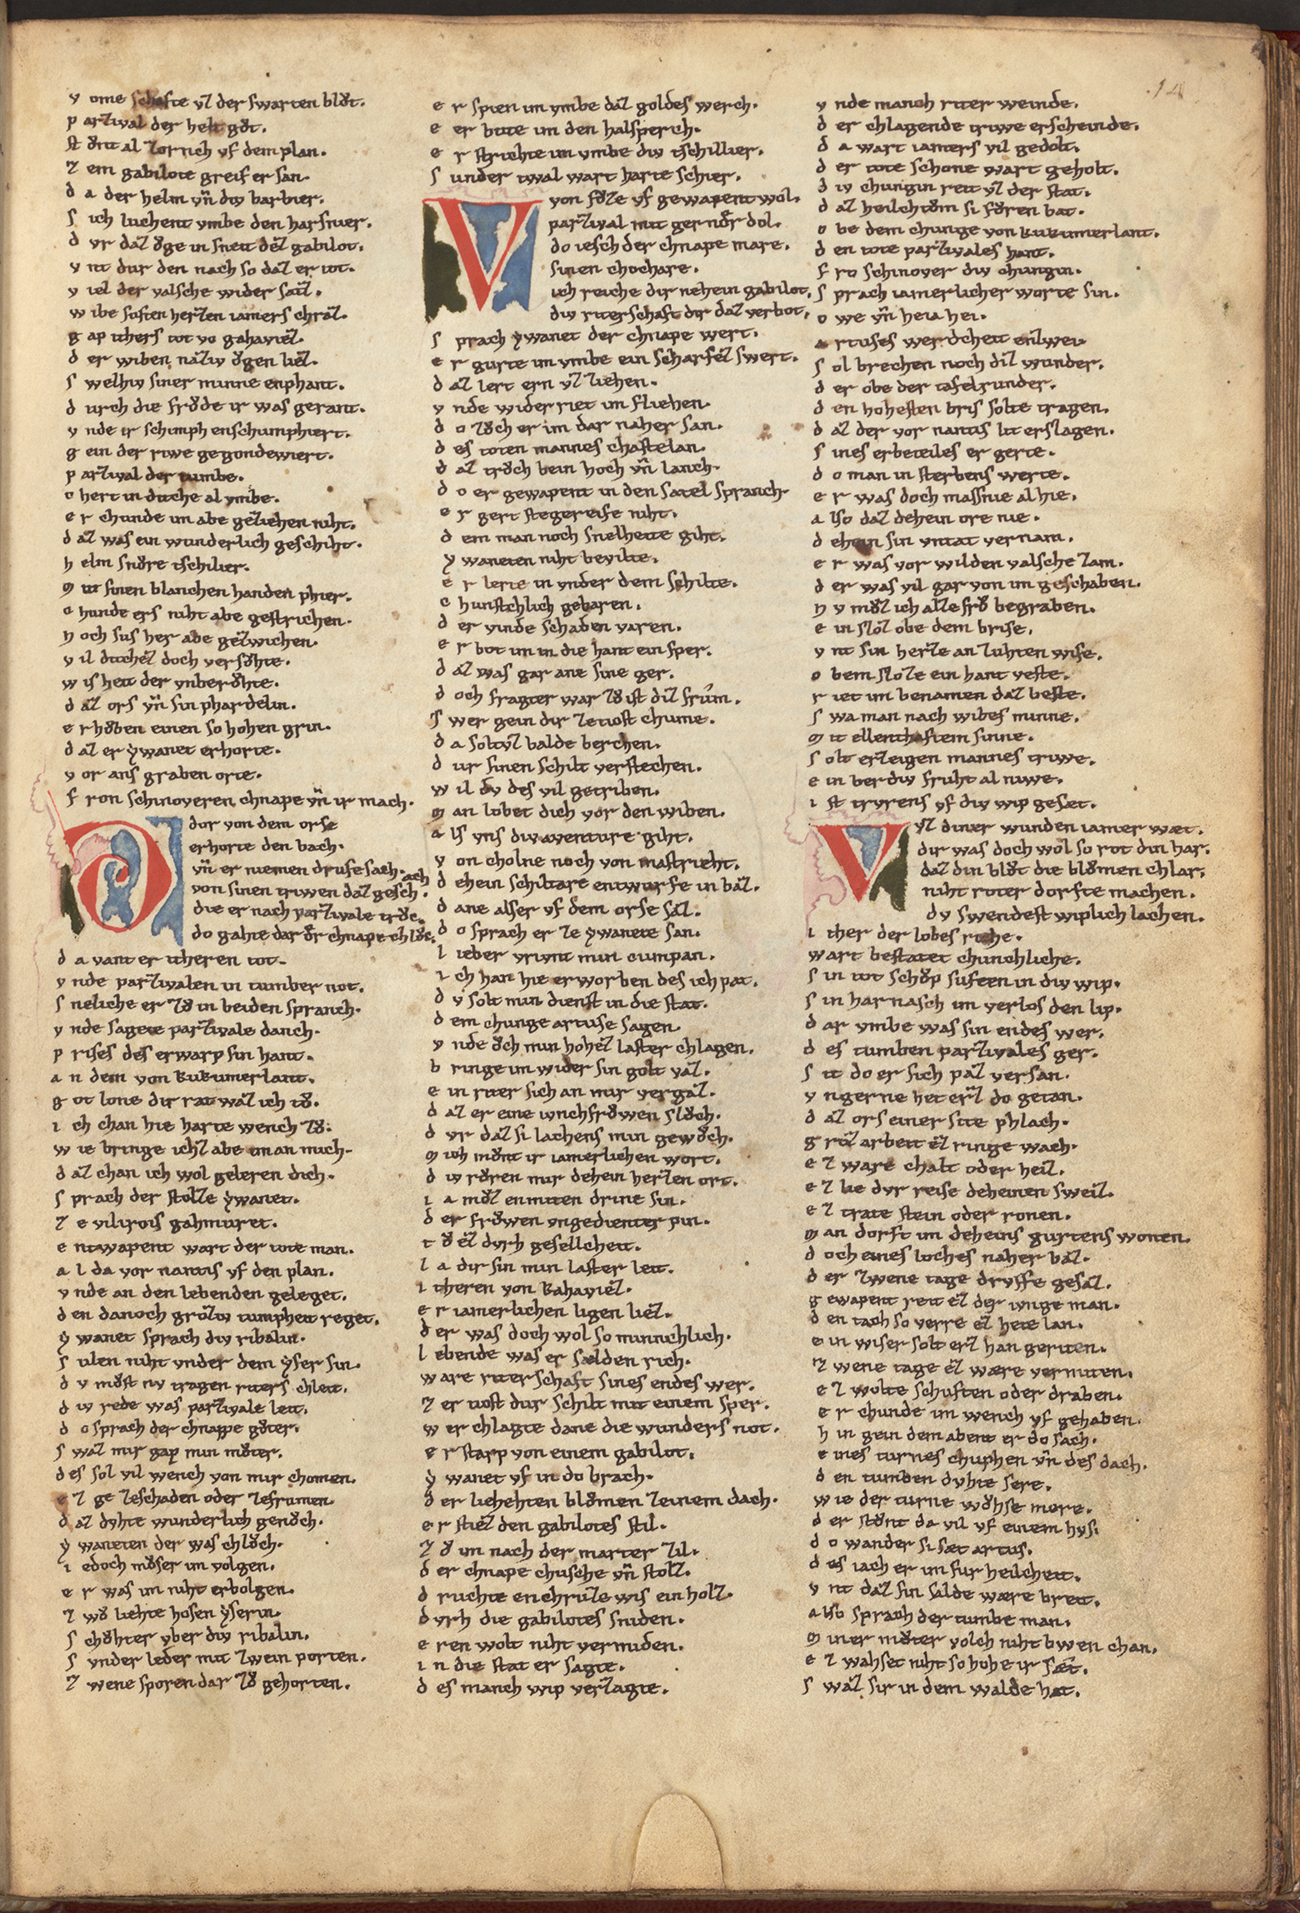 14
vome schafte vz der swarten blůt.
parzival der helt gůt.
stůnt al zornch vf dem plan.
zem gabilote greif er san.
da der helm vñ div barbier.
sich luchent vmbe den harsnier.
dvr daz ǒge in sneit dez gabilot.
vnt dur den nach so daz er tot.
viel der valsche wider saz.
wibe sofien herzen iamers chraz.
gap ithers tot vo gahaviez.
der wiben naziv ǒgen liez.
swelhiv siner minne enphant.
durch die frǒde ir was gerant.
vnde ir schimph enschumphiert.
gein der riwe gegondewiert.
parzival der tumbe.
chert in ditche al vmbe.
er chunde im abe geziehen niht.
daz was ein wunderlich geschiht.
helm snůre tschilier.
mit sinen blanchen handen phier.
chunde ers niht abe gestrichen.
noch sus her abe gezwichen.
vil ditchez doch versůhte.
wisheit der vnberůhte.
daz ors vñ sin phardelin.
erhůben einen so hohen grin.
daz er ẏwanet erhorte.
vor ans graben orte.
fron schinoyeren chnape vñ ir mach.
Dor von dem orse
erhorte den bach.
vñ er niemen drufe sach.
von sinen triwen daz gesch.ach
die er nach parzivale trůc.
do gahte dar ǒr chnape chlůc.
da vant er itheren tot.
vnde parzivalen in tumber not.
sneliche er zů in beiden spranch.
vnde sagete parzivale danch.
prises des erwarp sin hant.
an dem von kukumerlant.
got lone dir rat waz ich tů.
ich chan hie harte wench zů.
wie bringe ichz abe im an mich.
daz chan ich wol geleren dich.
sprach der stolze ẏwanet.
ze vilirois gahmuret.
entwapent wart der tote man.
alda vor nantis vf den plan.
vnde an den lebenden geleget.
den danoch grǒziv tumpheit reget.
ẏwanet sprach div ribalin.
sulen niht vnder dem ẏser sin.
dv můst nv tragen riters chleit.
div rede was parzivale leit.
do sprach der chnappe gůter.
swaz mir gap min můter.
des sol vil wench von mir chomen.
ez ge zeschaden oder zefrumen.
daz dvhte wunderlich genůch.
ẏwaneten der was chlůch.
iedoch můser im volgen.
er was im niht erbolgen.
zwo liehte hosen ẏserin.
schǒhter vber div ribalin.
svnder leder mit zwein porten.
zwene sporen dar zů gehorten.
er spien im vmbe daz goldes werch.
eer bute im den halsperch.
er strichte im vmbe div tschillier.
sunder twal wart harte schier.
Von fůze vf gewapent wol.
parzival mit gernder dol.
do iesch der chnape mare.
sinen chochare.
ich reiche dir nehein gabilot.
div riterschaft dir daz verbot.
sprach ẏwanet der chnape wert.
er gurte im vmbe ein scharfez swert.
daz lert ern vz ziehen.
vnde widerriet im fliehen.
do zǒch er im dar naher san.
des toten mannes chastelan.
daz trůch bein hoch vñ lanch.
do er gewapent in den satel spranch.
er gert stegereife niht.
dem man noch snelheite giht.
ẏwaneten niht bevilte.
er lerte in vnder dem schilte.
chunstchlich gebaren.
der vinde schaden varen.
er bot im in die hant ein sper.
daz was gar ane sine ger.
doch fragter war zů ist diz frům.
swer gein dir zetiost chume.
da soltvz balde berchen.
dur sinen schilt verstechen.
wil dv des vil getriben.
man lobet dich vor den wiben.
als vns div aventure giht.
von cholne noch von mastrieht.
dehein schiltare entwurfe in baz.
dane alser vf dem orse saz.
do sprach er ze ẏwanete san.
lieber vrivnt min cumpan.
ich han hie erworben des ich pat.
dv solt min dienst in die stat.
dem chunge artuse sagen.
vnde ǒch min hohez laster chlagen.
bringe im wider sin golt vaz.
ein riter sich an mir vergaz.
daz er eine ivnchfrǒwen slůch.
dvr daz si lachens min gewůch.
mich můnt ir iamerlichen wort.
div růren mir dehein herzen ort.
ia můz enmitten drine sin.
der frǒwen vngedienter pin.
tů ez dvrh gesellcheit.
la dir sin min laster leit.
itheren von kahaviez.
er iamerlichen ligen liez.
der was doch wol so minnchlich.
lebende was er sælden rich.
ware riterschaft sines endes wer.
zer tiost dur schilt mit einem sper.
wer chlagte dane die wunders not.
er starp von einem gabilot.
ẏwanet vf in do brach.
der liehehten blůmen zeinem dach.
er stiez den gabilotes stil.
zů im nach der marter zil.
der chnape chusche vñ stolz.
druchte en chruze wis ein holz.
dvrh die gabilotes sniden.
eren wolt niht vermiden.
in die stat er sagte.
des manch wip verzagte.
vnde manch riter weinde.
der chlagende triwe erscheinde.
da wart iamers vil gedolt.
der tote schone wart geholt.
div chungin reit vz der stat.
daz heilchtům si fůren bat.
obe dem chunge von kukumerlant.
den tote parzivales hant.
fro schinover div chungin.
sprach iamerlicher worte sin.
owe vñ heia hei.
artuses werdcheit enzwei.
sol brechen noch diz wunder.
der obe der tafelrunder.
den hohesten bris solte tragen.
daz der vor nantis lit erslagen.
sines erbeteiles er gerte.
do man in sterbens werte.
er was doch massnie alhie.
also daz dehein ore nie.
dehein sin vntat vernam.
er was vor wilden valsche zam.
der was vil gar von im geschaben.
nv můz ich alze frů begraben.
ein sloz obe dem brise.
vnt sin herze an zuhten wise.
obem sloze ein hant veste.
riet im benamen daz beste.
swa man nach wibes minne.
mit ellenthaftem sinne.
solt erzeigen mannes triwe.
ein berdiv fruht al niwe.
ist trvrens vf div wip gesæt.
Vz diner wunden iamer wæt.
dir was doch wol so rot din har.
daz din blůt die blůmen chlar.
niht roter dorfte machen.
dv swendest wiplich lachen.
ither der lobes riche.
wart bestatet chunchliche.
sin tot schůp suften in div wip.
sin harnasch im verlos den lip.
dar vmbe was sin endes wer.
des tumben parzivales ger.
sit do er sich paz versan.
vngerne het erz do getan.
daz ors einer site phlach.
groz arbeit ez ringe wach.
ez ware chalt oder heiz.
ez lie dvr reise deheinen sweiz.
ez trate stein oder ronen.
man dorft im deheins gurtens wonen.
doch eines loches naher baz.
der zwene tage drvffe gesaz.
gewapent reit ez der ivnge man.
den tach so verre ez hete lan.
ein wiser solt erz han geriten.
zwene tage ez wære vermiten.
ez wolte schuften oder draben.
er chunde im wench vf gehaben.
hin gein dem abent er do sach.
eines turnes chuphen vñ des dach.
den tumben dvhte sere.
wie der turne wůhse mere.
der stůnt da vil vf einem hvs.
do wander si sæt artus.
des iach er im fur heilcheit.
vnt daz sin sælde wære breit.
also sprach der tumbe man.
miner můter volch niht bwen chan.
ez wahset niht so hohe ir sæt.
swaz sir in dem walde hat.